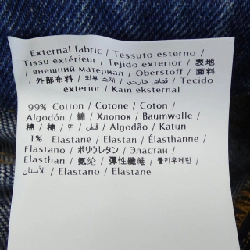 External fabric / Tessuto esterno /
Tissu extérieur / Tejido exterior / 表地
/ внешний материал / Oberstoff / 面料
/ 外部布料 / / Tecido
exterior / Kain eksternal
99% Cotton / Cotone / Coton /
Algodón / 綿 / Хлопок / Baumwolle /
棉 / 棉 / 면 / قطن / Algodão / Katun
1% Elastane / Elastan / Élasthanne /
Elastano / ポリウレタン / Эластан /
Elasthan / 氨纶 / 彈性纖維 / 폴리우레탄 /
/ Elastano / Elastane